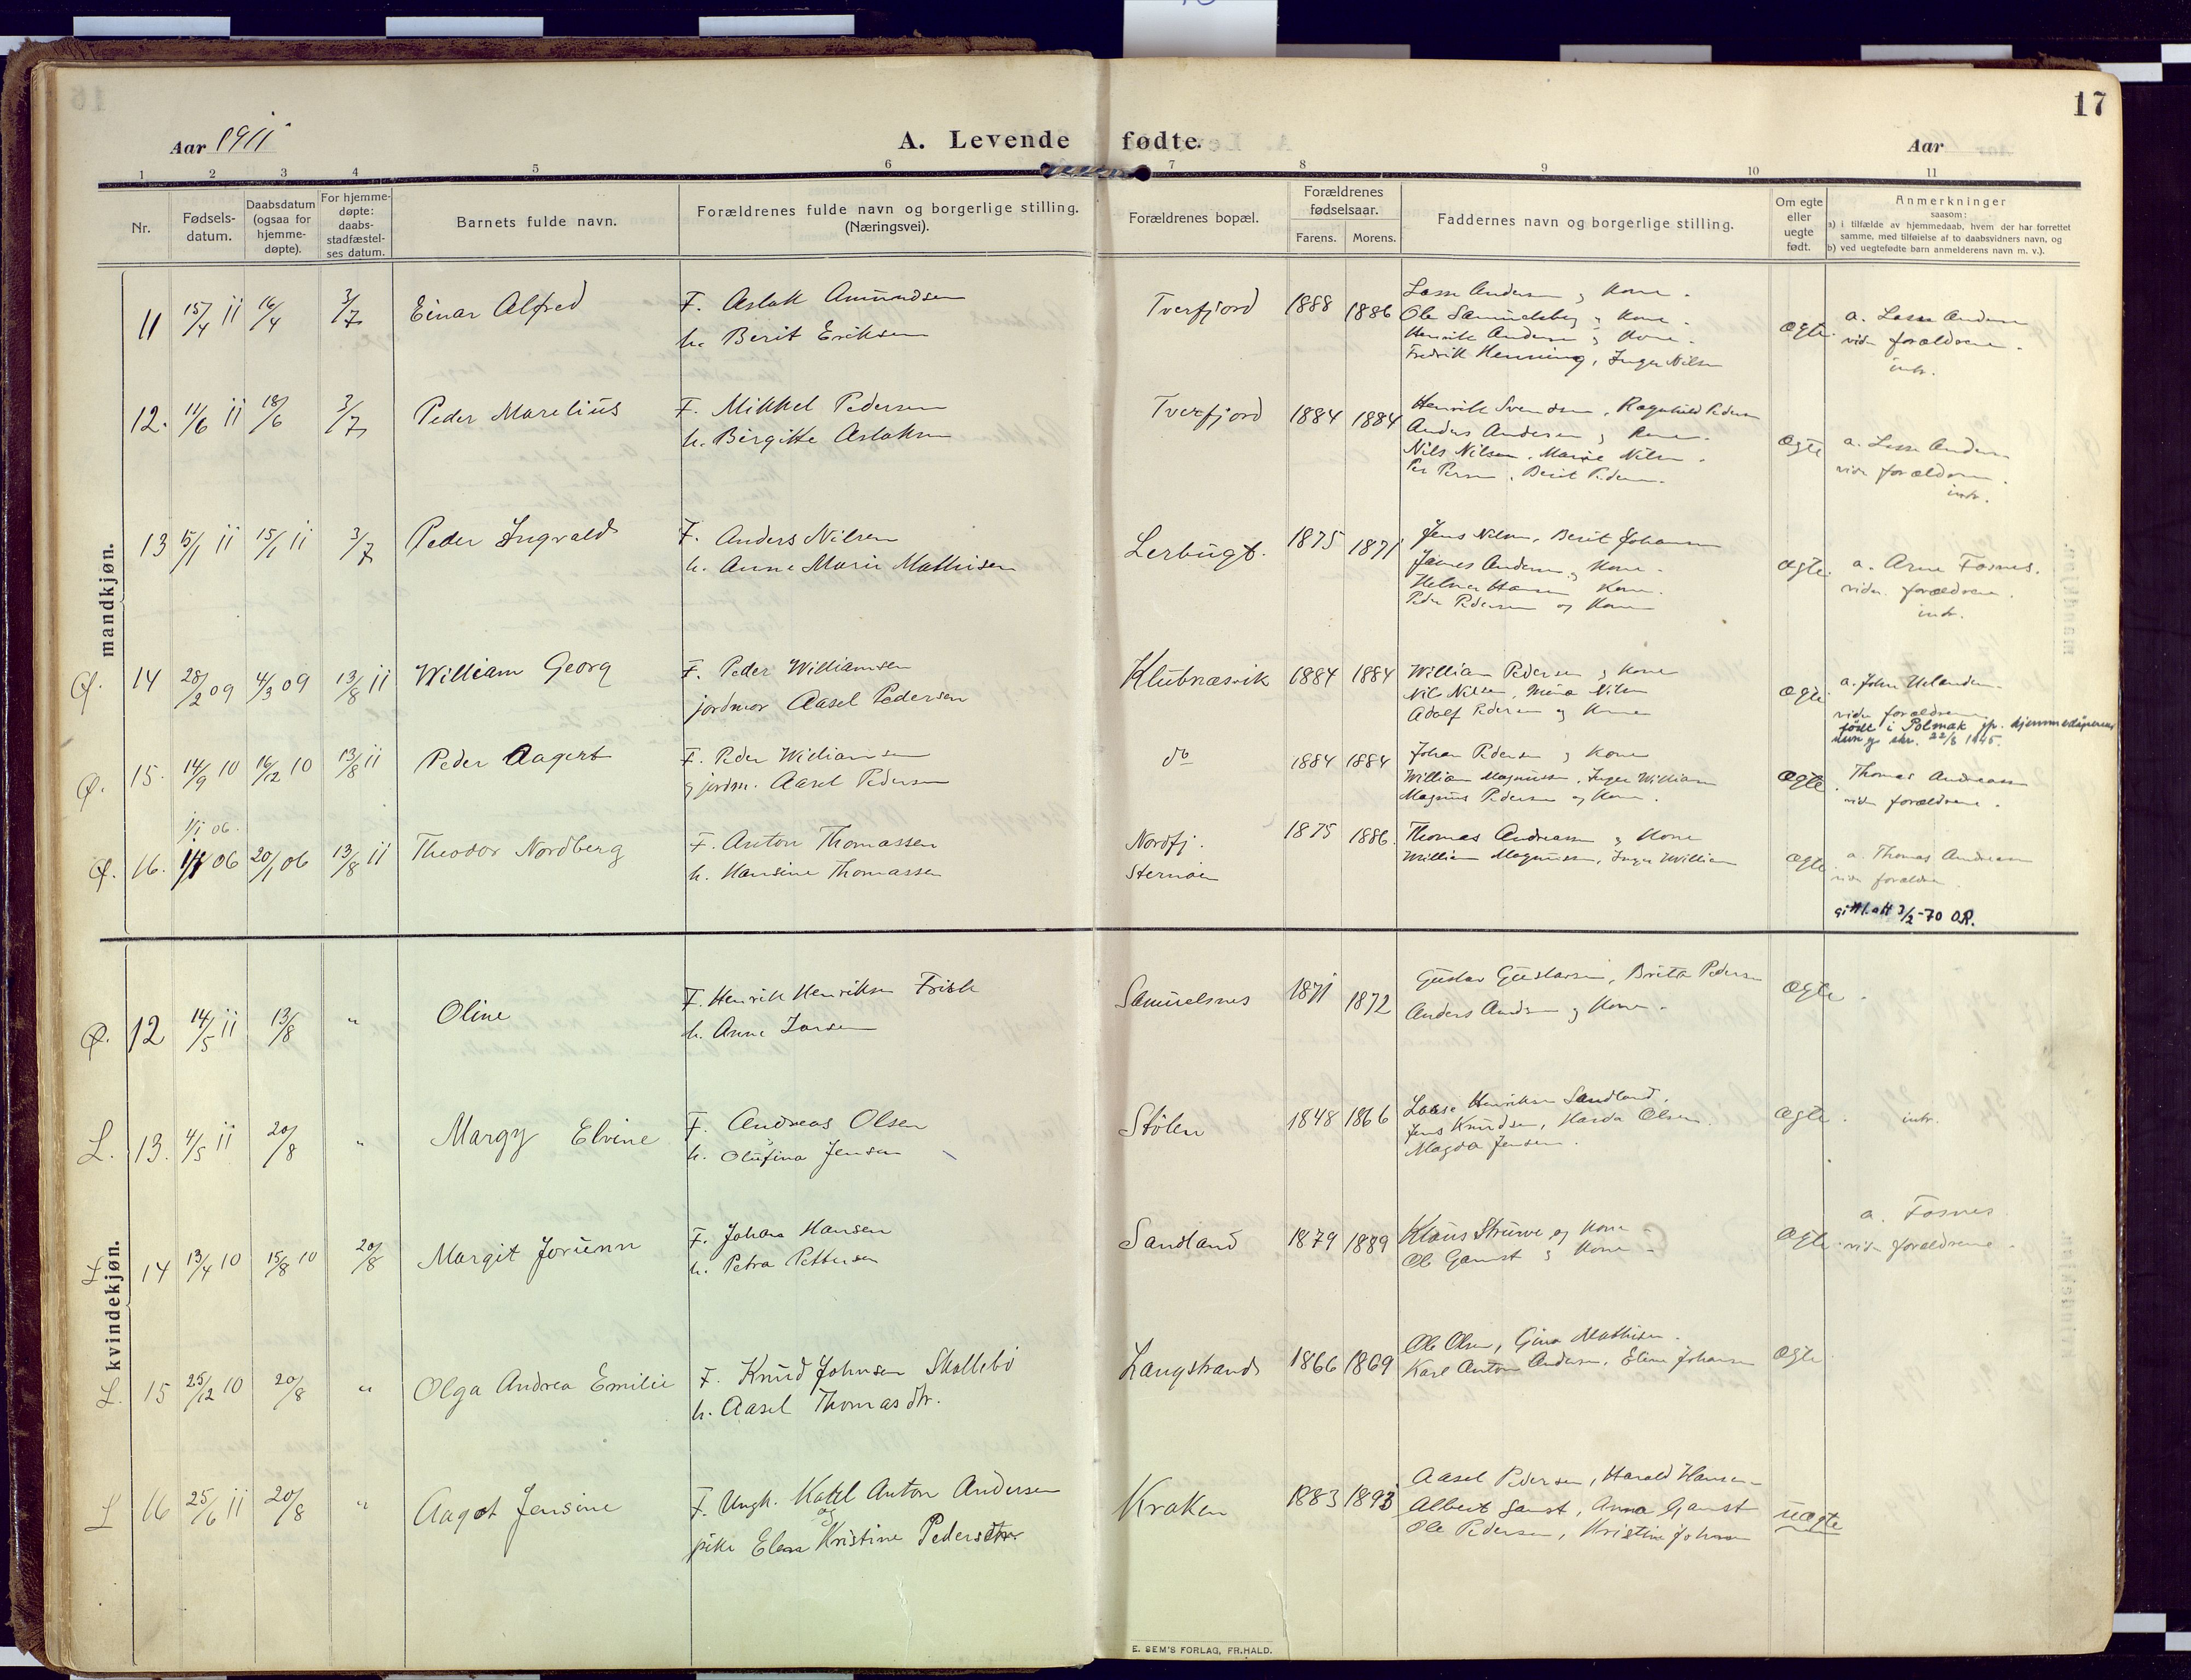 17
Aar 1911
A. Levende fødte.
Aar
1 2 3 4 5 6 7 8 9 10 11
Nr.
Fødsels-
datum.
Daabsdatum
(ogsaa for
hjemme-
døpte).
For hjemme-
døpte:
daabs-
stadfæstel-
ses datum.
Barnets fulde navn.
Forældrenes fulde navn og borgerlige stilling.
(Næringsvei).
Forældrenes bopæl.
Forældrenes
fødselsaar.
Farens. Morens.
Faddernes navn og borgerlige stilling.
Om egte
eller
uegte
født.
Anmerkninger
saasom:
a) i tilfælde av hjemmedaab, hvem der har forrettet
samme, med tilføielse af to daabsvidners navn, og
b) ved uegtefødte barn anmelderens navn m. v.).
mandkjøn.
11 15/4 11 16/4 3/7 Einar Alfred
F. Aslak Amundsen
h. Berit Eriksen
Tverfjord 1888 1886
Lasse Andersen og Kone.
Henrik Andersen og Kone.
Fredrik Henning, Inger Nilsen
ægte.
a. Lasse Andersen
vidn forældrene.
intr.
12. 11/6 11 18/6 3/7 Peder Marelius
F. Mikkel Pedersen
h. Birgitte Aslaksen
Tverfjord 1884 1884
Henrik Svendsen, Ragnhild Pedersen
Anders Andersen og Kone.
Nils Nilsen, Marie Nilsen.
Per Persen, Berit Pedersen.
ægte
a. Lasse Andersen
vidn forældrene.
intr.
13 15/1 11 15/1 11 3/7 Peder Ingvald
F. Anders Nilsen
h. Anne Marie Mathisen
Lerbugt. 1875 1871
Jens Nilsen, Berit Johansen
Helmer Hansen Kone.
Peder Pedersen og Kone
ægte.
a. Arne Fosnes.
vidn. forældrene.
intr.
Ø. 14 28/2 09 4/3 09 13/8 11 William Georg
F. Peder Williamsen
jordmor Aasel Pedersen
Klubnæsvik 1884 1884
William Pedersen og Kone
Nils Nilsen, Mina Nilsen
Adolf Pedersen og Kone
ægte.
a. John
vidn forældrene
født i Polmak
skr. 22/8 1945.
Ø. 15. 14/9 10 16/12 10 13/8 11 Peder Aagert
F. Peder Williamsen
og jordm. Aasel Pedersen
do 1884 1884
Johan Pedersen og Kone
William Magnussen, Inger William
Magnus Pedersen og Kone.
ægte.
Thomas Andreassen
vidn forældrene.
1/1 06.
Ø. 16. 06 20/1 06 13/8 11 Theodor Nordberg
F. Anton Thomassen
h. Hansine Thomassen
Nordfj.
Sternøen
1875 1886.
Thomas Andreassen og Kone
William Magnussen, Inger William
ægte
a. Thomas Andreassen
vidn forældrene
3/2-70 O.R.
kvindekjøn.
Ø. 12 14/5 11 13/8 " Oline
F. Henrik Henriksen Frisk
h. Anne Larsen
Samuelsnes 1871 1872
Gustav Gustavsen, Brita Pedersen
Anders Andersen og Kone.
ægte.
L. 13. 4/5 11 20/8 " Margy Elvine
F. Andreas Olsen
h. Olufina Jensen
Stölen 1848 1866
Lasse Henriksen Sandland.
Jens Knudsen, Harda Olsen.
Magda Jensen.
ægte.
intr.
L 14 13/4 10 15/8 10 20/8 Margit Jorunn
F. Johan Hansen
h. Petra Pettersen
Sandland 1879 1889
Klaus Struwe og Kone
Ole Gamst og Kone
ægte.
a. Fosnes
vidn forældrene.
L. 15 25/12 10 20/8 " Olga Andrea Emilie
F. Knud Johnsen Skallebö
h. Aasel Thomasdtr.
Langstrand 1866 1869
Ole Olsen, Gina Mathisen.
Karl Anton Andersen, Eline Johansen
ægte
L 16 25/6 11 20/8 " Aagot Jensine
F. Ungk. Anton Andersen
og
pike Elen Kristine Pedersdtr.
Kraken 1883 1893
Aasel Pedersen, Harald Hansen
Albert Gamst, Anna Gamst
Ole Pedersen, Kristine Johansen
uægte
E. SEM'S FORLAG, FR.HALD.